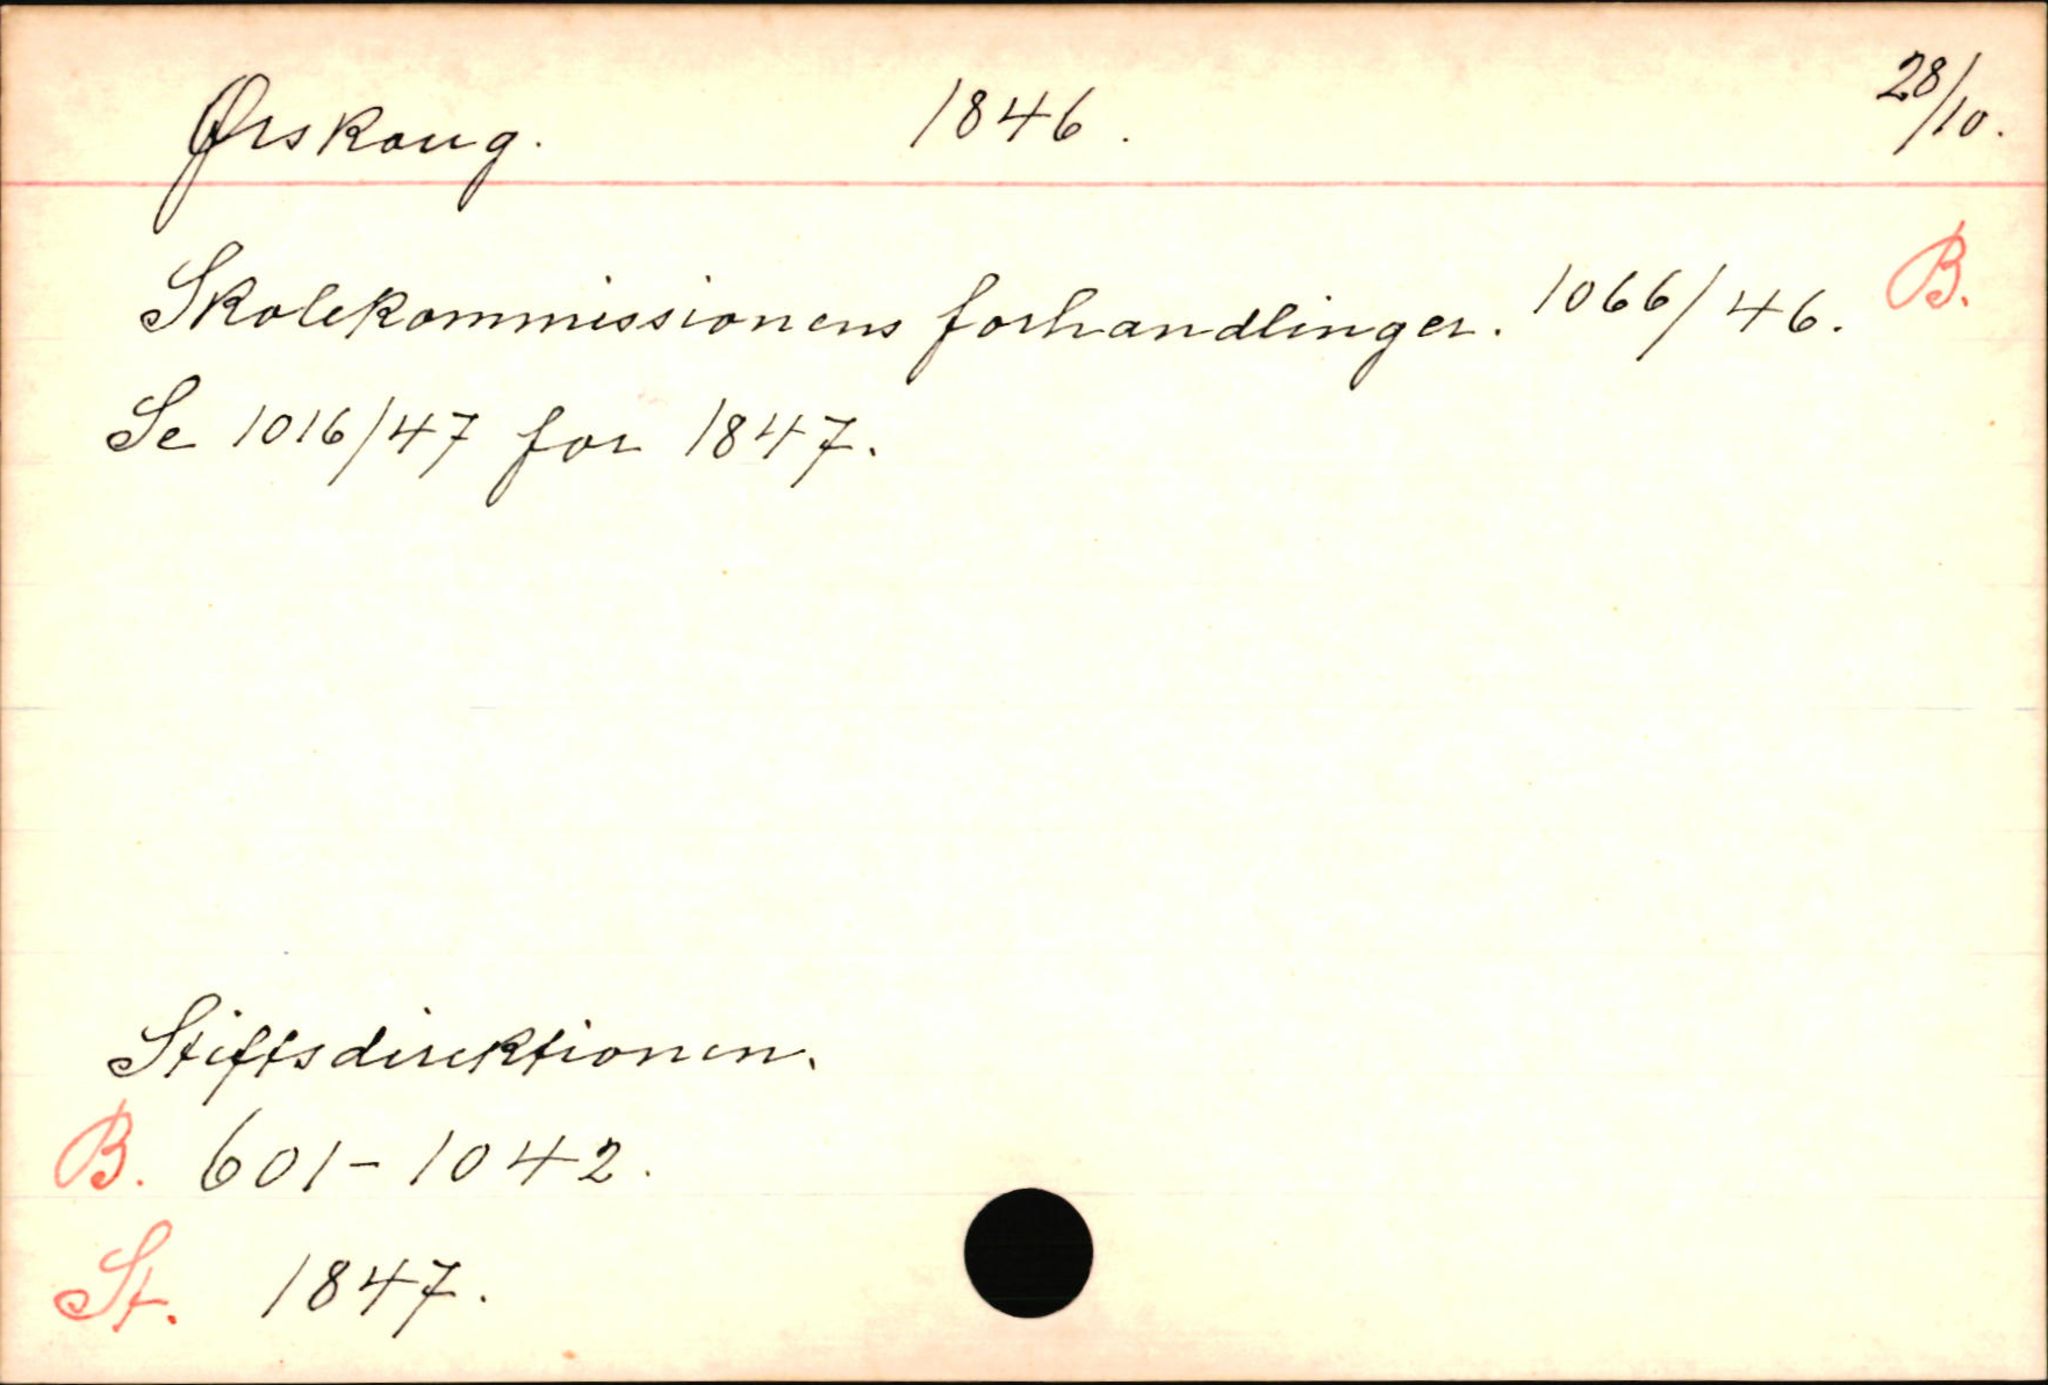 Ørskoug. 1846. 28/10.
Skolekommissionens forhandlinger. 1066/46. B.
Se 1016/47 for 1847.
Stiftsdirektionen.
B. 601-1042.
St. 1847.